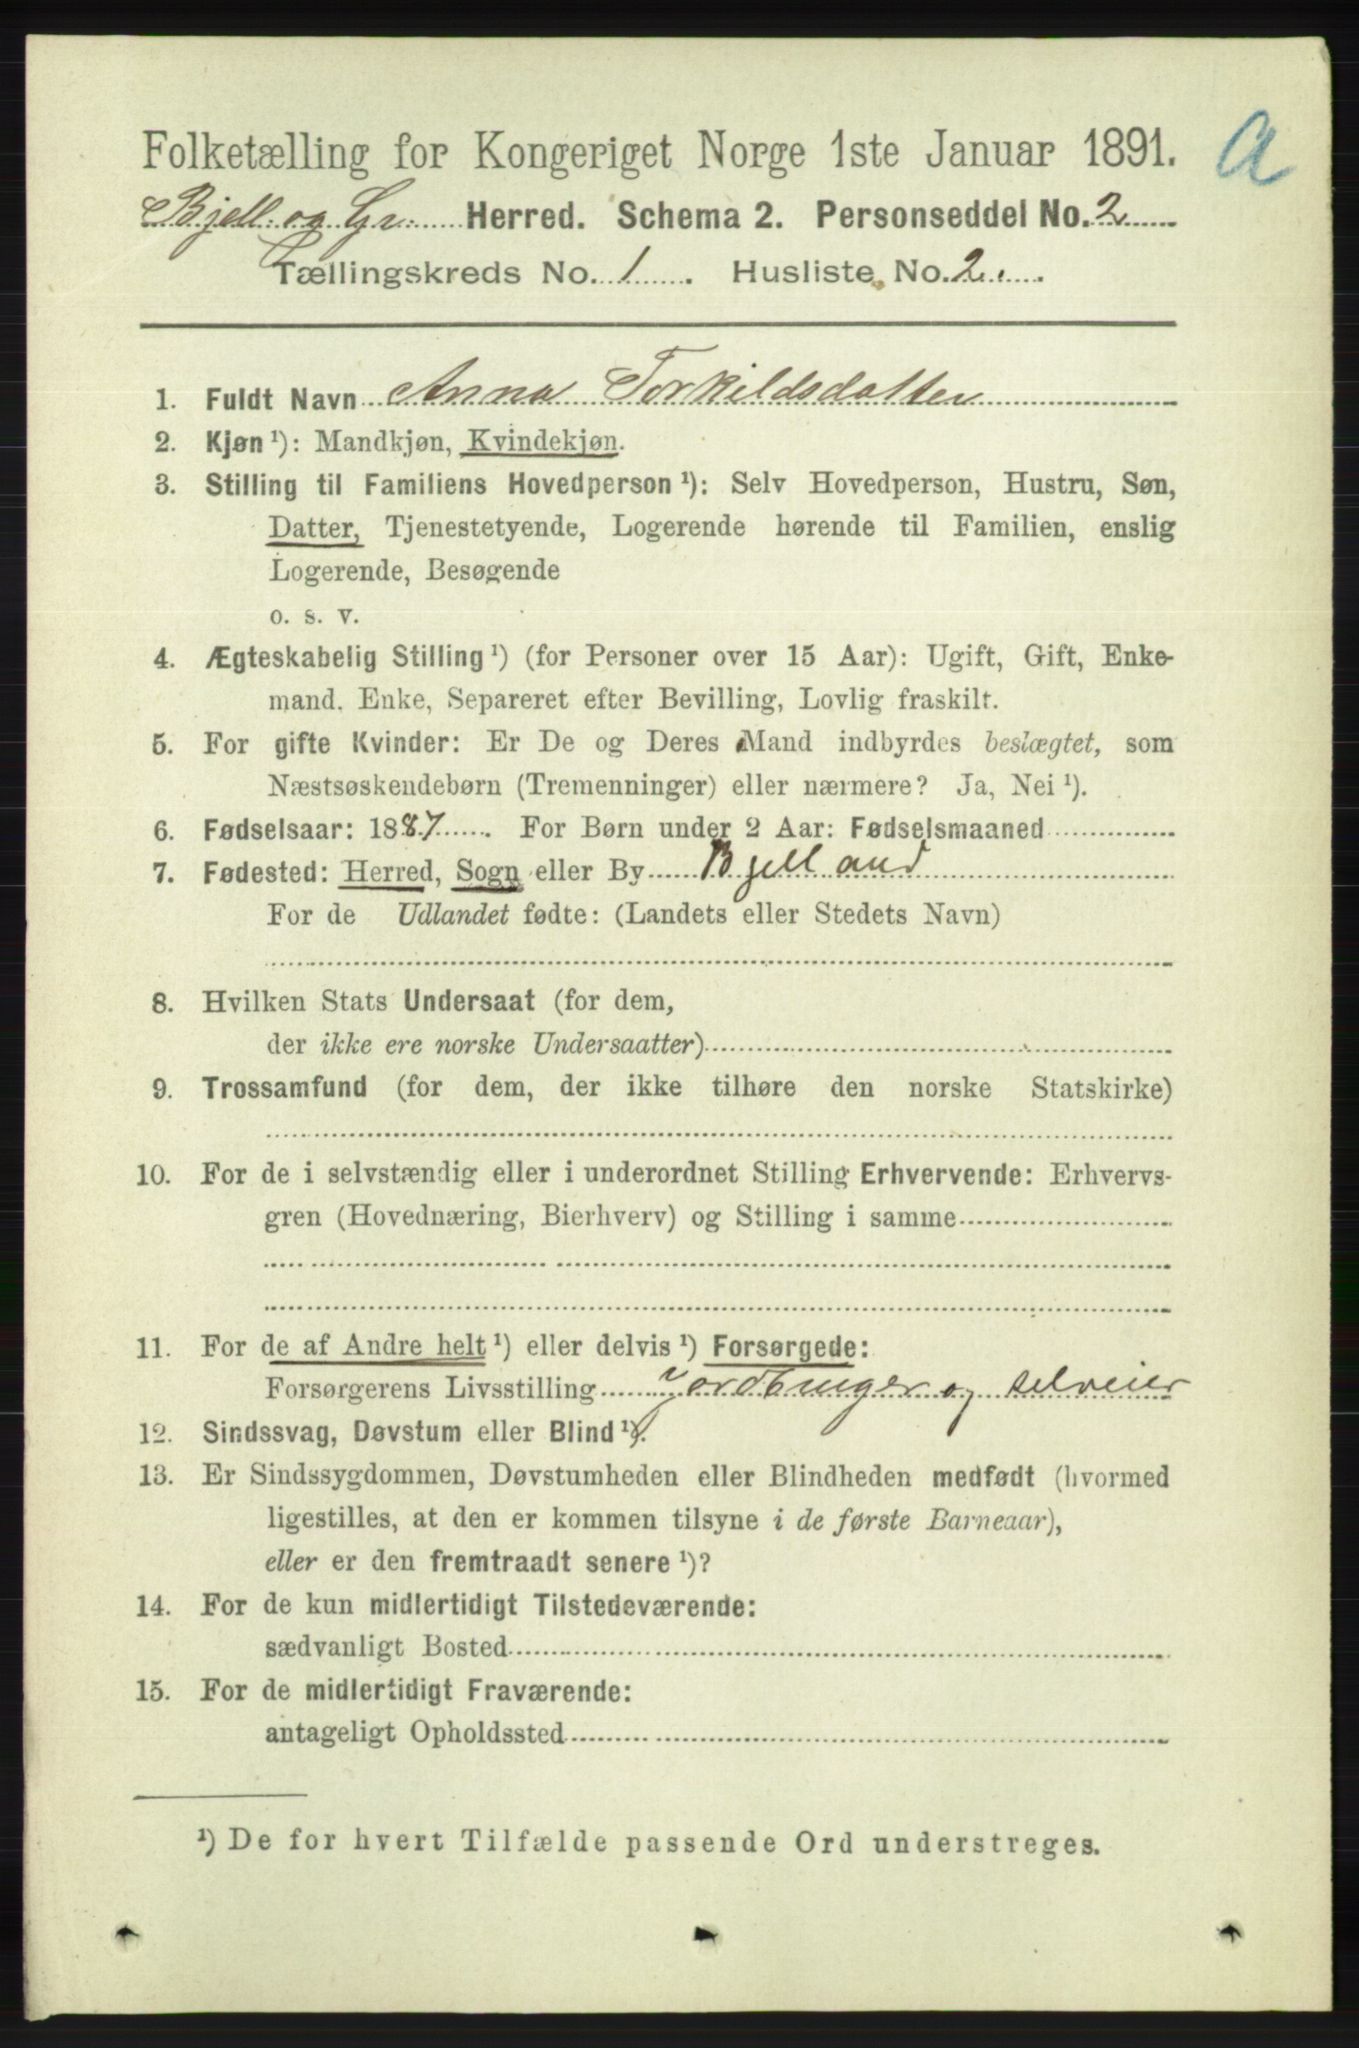 Folketælling for Kongeriget Norge 1ste Januar 1891.
a
Bjell. og Gr. Herred. Schema 2. Personseddel No. 2
Tællingskreds No. 1. Husliste No. 2.
1. Fuldt Navn Anna Torkildsdatter
2. Kjøn ¹): Mandkjøn, Kvindekjøn.
3. Stilling til Familiens Hovedperson ¹): Selv Hovedperson, Hustru, Søn,
Datter, Tjenestetyende, Logerende hørende til Familien, enslig
Logerende, Besøgende
o. s. v.
4. Ægteskabelig Stilling ¹) (for Personer over 15 Aar): Ugift, Gift, Enke-
mand. Enke, Separeret efter Bevilling, Lovlig fraskilt.
5. For gifte Kvinder: Er De og Deres Mand indbyrdes beslægtet, som
Næstsøskendebørn (Tremenninger) eller nærmere? Ja, Nei ¹).
6. Fødselsaar: 1887. For Børn under 2 Aar: Fødselsmaaned
7. Fødested: Herred, Sogn eller By Bjelland
For de Udlandet fødte: (Landets eller Stedets Navn)
8. Hvilken Stats Undersaat (for dem,
der ikke ere norske Undersaatter)
9. Trossamfund (for dem, der ikke tilhøre den norske Statskirke)
10. For de i selvstændig eller i underordnet Stilling Erhvervende: Erhvervs-
gren (Hovednæring, Bierhverv) og Stilling i samme
11. For de af Andre helt ¹) eller delvis ¹) Forsørgede:
Forsørgerens Livsstilling Jordbruger og selveier
12. Sindssvag, Døvstum eller Blind ¹).
13. Er Sindssygdommen, Døvstumheden eller Blindheden medfødt (hvormed
ligestilles, at den er kommen tilsyne i de første Barneaar),
eller er den fremtraadt senere ¹)?
14. For de kun midlertidigt Tilstedeværende:
sædvanligt Bosted
15. For de midlertidigt Fraværende:
antageligt Opholdssted
¹) De for hvert Tilfælde passende Ord understreges.